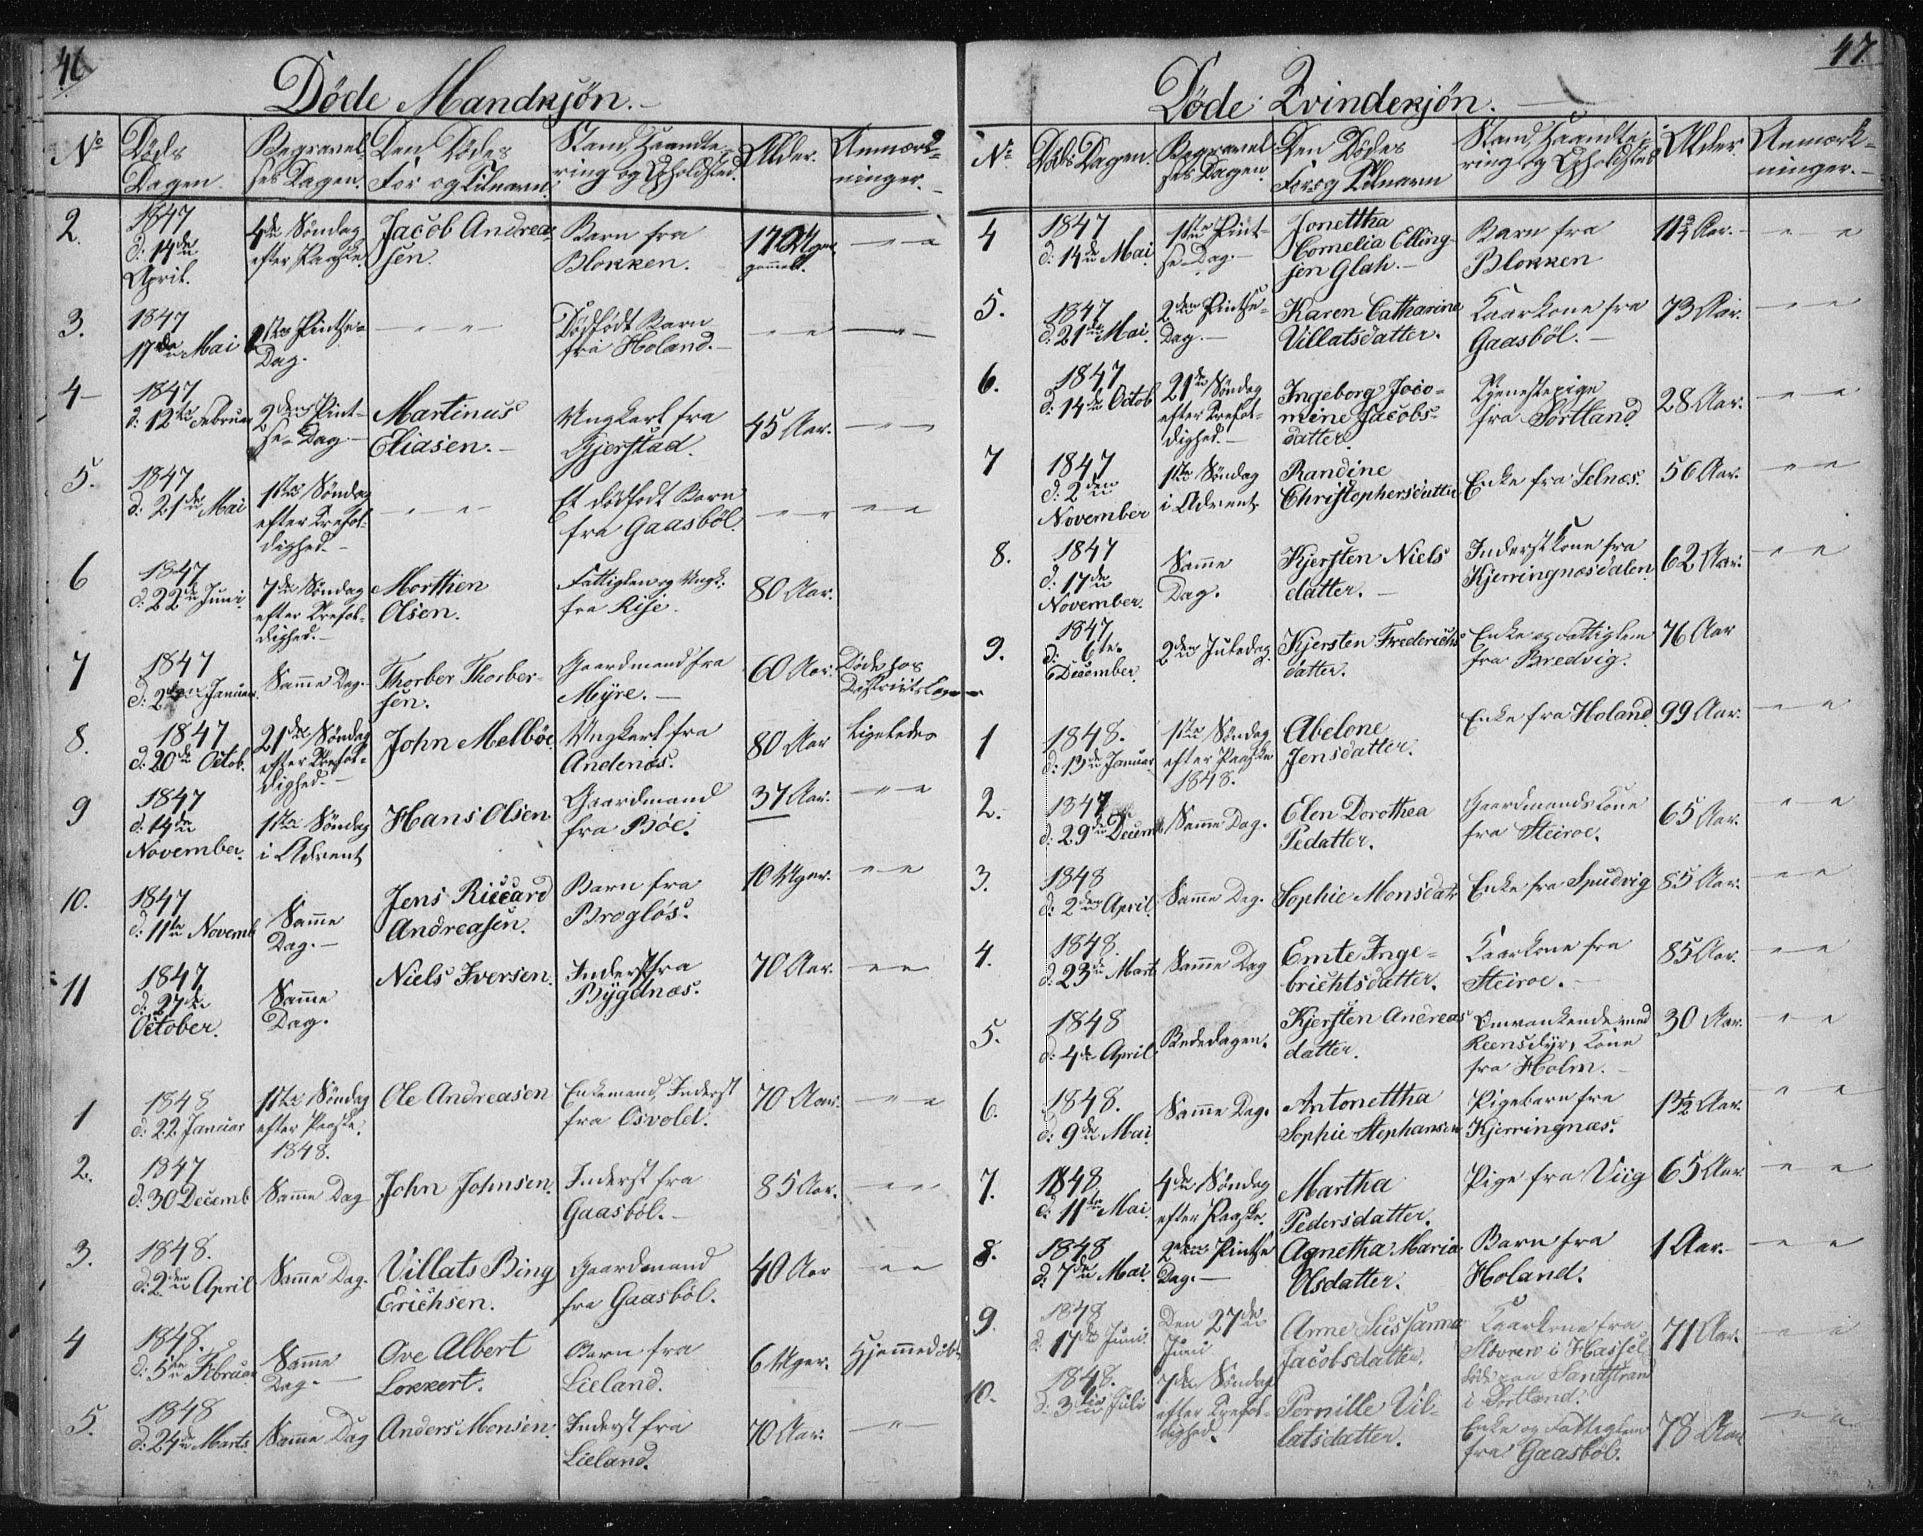 46
Døde Mandkjön.
No
Døds Dagen.
Begravel-
ses Dagen.
Den Dødes
For og Tilnavn
Stand, Haandte-
ring og Opholdsted.
Alder.
Anmærk-
ninger.
2.
1847
d: 14de
April.
4de Søndag
efter Paaske
Jacob Andrea-
sen.
Barn fra
Blokken.
17 Uger
gammel.
" "
3.
1847
17de Mai
2den Pintse-
Dag.
" "
Dødfødt Barn
fra Holand.
" "
4
1847
d: 12te Februar
2den Pint-
se-Dag
Martinus
Eliasen.
Ungkarl fra
Gjerstad.
45 Aar.
" "
5.
1847
d: 21de Mai
1ste Søndag
efter Trefol-
dighed.
" "
Et dødfødt Barn
fra Gaasböl.
" "
" "
6
1847
d: 22de Juni
7de Søndag
efter Trefol-
dighed.
Morthen
Olsen.
Fattiglem og Ungk:
fra Rise.
80 Aar.
7
1847
d: 2den Januar
Samme Dag.
Thorber Thorber-
sen.
Gaardmand fra
Myre.
60 Aar.
Døde hos
8.
1847
d: 20de Octob.
21de Søndag
efter Trefol-
dighed.
John Melböe
Ungkarl fra
Andenæs.
80 Aar
Ligeledes
9
1847
d: 14de
November.
1ste Søndag
i Advent
Hans Olsen
Gaardmand
fra Böe.
37 Aar.
" "
10.
1847
d: 11te Novemb
Samme
Dag.
Jens Riccard
Andreasen.
Barn fra
Broglös.
10 Uger.
" "
11
1847
d: 27de
October.
Samme
Dag.
Niels Iversen.
Inderst fra
Bygdnæs.
70 Aar.
" "
1
1848
d: 22 Januar
1ste Søndag
efter Paaske.
1848.
Ole Andreasen
Enkemand, Inderst
fra Osvold.
70 Aar.
" "
2.
1847
d: 30 Decemb
Samme Dag
John Johnsen.
Inderst fra
Gaasböl.
85 Aar.
" "
3.
1848.
d: 2den April
Samme Dag.
Villats Bing
Erichsen.
Gaardmand
fra Gaasböl.
40 Aar
" "
4
1848.
d: 5te Februar
Samme
Dag.
Ove Albert
Lokkert.
Barn fra
Lieland.
6 Uger.
Hjemmedöbt
5.
1848
d: 24de Marts.
Samme Dag
Anders Monsen.
Inderst fra
Lieland.
70 Aar.
"
47.
Døde Qvindekjön.
No
Døds Dagen.
Begravel-
ses Dagen.
Den Dødes
For og Tilnavn
Stand, Haandte-
ring og Opholdsted
Alder
Anmærk-
ninger.
4
1847
d: 14de Mai
1ste Pint-
se-Dag.
Jonettha
Cornelia Elling-
sen Glah.
Barn fra
Blokken
" "
5.
1847
d: 21de Mai.
2den Pintse-
Dag.
Karen Catharine
Villatsdatter.
Kaarkone fra
Gaasböl.
73 Aar.
" "
6.
1847
d: 14de Octob
21de Søndag
efter Trefol-
dighed.
Ingeborg Joco-
mine Jacobs-
datter.
Tjenestepige
fra Sortland
28 Aar.
" "
7
1847
d: 2den
November
1ste Søndag
i Advent
Randine
Christophersdatter
Enke fra Selnæs.
56 Aar.
" "
8.
1847
d: 17de
November.
Samme
Dag.
Kjersten Niels
datter.
Inderstkone fra
Kjerringnæsdalen
62 Aar.
" "
9.
1847
d: 6te
December.
2den Juledag.
Kjersten Frederichs
datter.
Enke og Fattiglem
fra Bredvig.
76 Aar
1
1848.
d: 13de Januar
1ste Søndag
efter Paaske
1848.
Abelone
Jensdatter.
Enke fra Holand
99 Aar.
" "
2.
1847
d: 29de Decemb
Samme Dag.
Elen Dorothea
Pedatter.
Gaardmands Kone
fra Steiroe.
65 Aar.
" "
3.
1848
d: 2den April.
Samme Dag.
Sophie Monsdatr
Enke fra Spudvig
85 Aar.
" "
4.
1848.
d: 23de Mart
Samme Dag
Emte Inge-
brichtsdatter.
Kaarkone fra
Steiroe.
85 Aar.
" "
5.
1848
d: 4de April
Bededagen.
Kjersten Andreas
datter.
Omvankende med
Reensdyr, Kone
fra Holm.
30 Aar.
" "
6.
1848.
d: 9de Mai
Samme Dag.
Antonettha
Sophie Stephansen
Pigebarn fra
Kjerringnæs.
13½ Aar.
" "
7.
1848.
d: 11te Mai.
4de Søndag
efter Paaske.
Martha
Pedersdatter.
Pige fra Viig
65 Aar.
" "
8.
1848
d: 7de Mai.
2den Pintse
Dag.
Agnetha Maria
Olsdatter.
Barn fra
Holand.
1 Aar.
" "
9.
1848
d: 17de Juni.
Den 27de
Juni
Anne Susanna
Jacobsdatter.
Kaarkone fra
Stovren i Hassel
döde paa Sandstran
i Sortland.
71 Aar.
" "
10.
1848.
d: 3die Juli
7de Søndag
efter Trefol-
dighed.
Pernille Vil-
latsdatter.
Enke og Fattiglem
fra Gaasböl.
78 Aar
" "